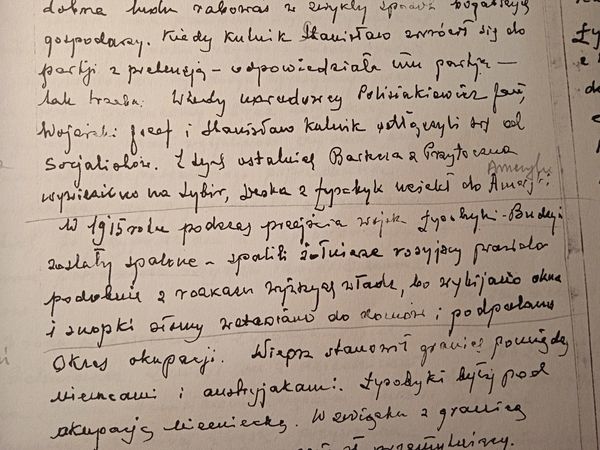 dobra ludu rabować w zwykły sposób bogatszych
gospodarzy. Kiedy Kulnik Stanisław zwrócił się do
partji z pretensją – odpowiedziała mu partja –
tak trzeba. Wtedy narodowcy Polisiakiewicz Jan,
Wojarski Józef i Stanisław Kulnik odłączyli się od
Socjalistów. Z tych ostatnich z Przytoczna Ameryki
wywieziono na Sybir, z Łysobyk uciekł do
W 1915 roku podczas przejścia wojsk Łysobyki-Budzyń
zostały spalone – spalili żołnierze rosyjscy
podobnie z rozkazu wyższych władz, bo wybijano okna
i snopki słomy wstawiano do domów i podpalano
Okres okupacji. Wieprz stanowił granicę pomiędzy
niemcami i austryjakami. Łysobyki były pod
okupacją niemiecką. W związku z granicą